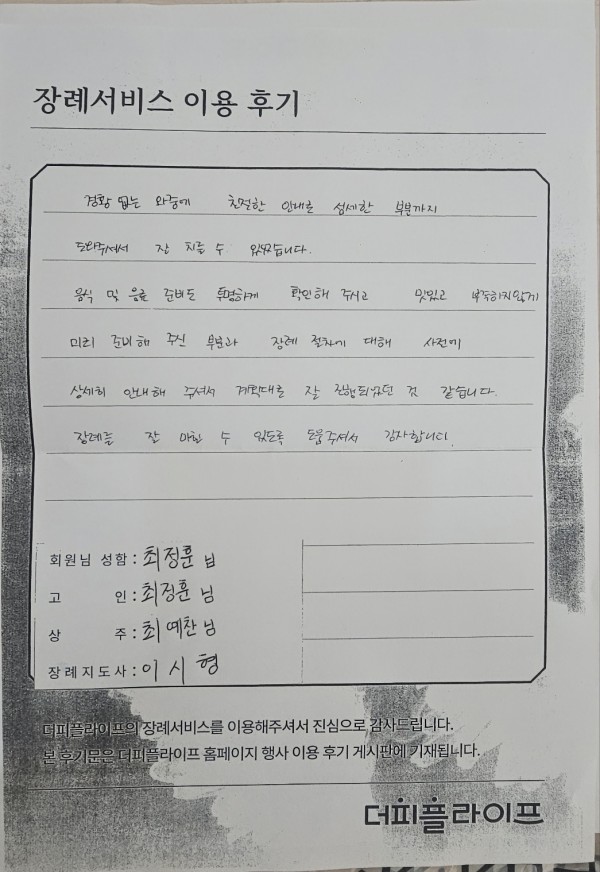 장례서비스 이용 후기
경황 없는 와중에 친절한 안내로 섬세한 부분까지
도와주셔서 잘 치를 수 있었습니다.
음식 및 음료 준비도 투명하게 확인해 주시고 맛있고 부족하지않게
미리 준비해 주신 부분과 장례 절차에 대해 사전에
상세히 안내해 주셔서 계획대로 잘 진행되었던 것 같습니다.
장례를 잘 마칠 수 있도록 도움주셔서 감사합니다.
회원님 성함 : 최정훈 님
고 인 : 최정훈 님
상 주 : 최예찬 님
장례지도사 : 이시형
더피플라이프의 장례서비스를 이용해주셔서 진심으로 감사드립니다.
본 후기문은 더피플라이프 홈페이지 행사 이용 후기 게시판에 기재됩니다.
더피플라이프